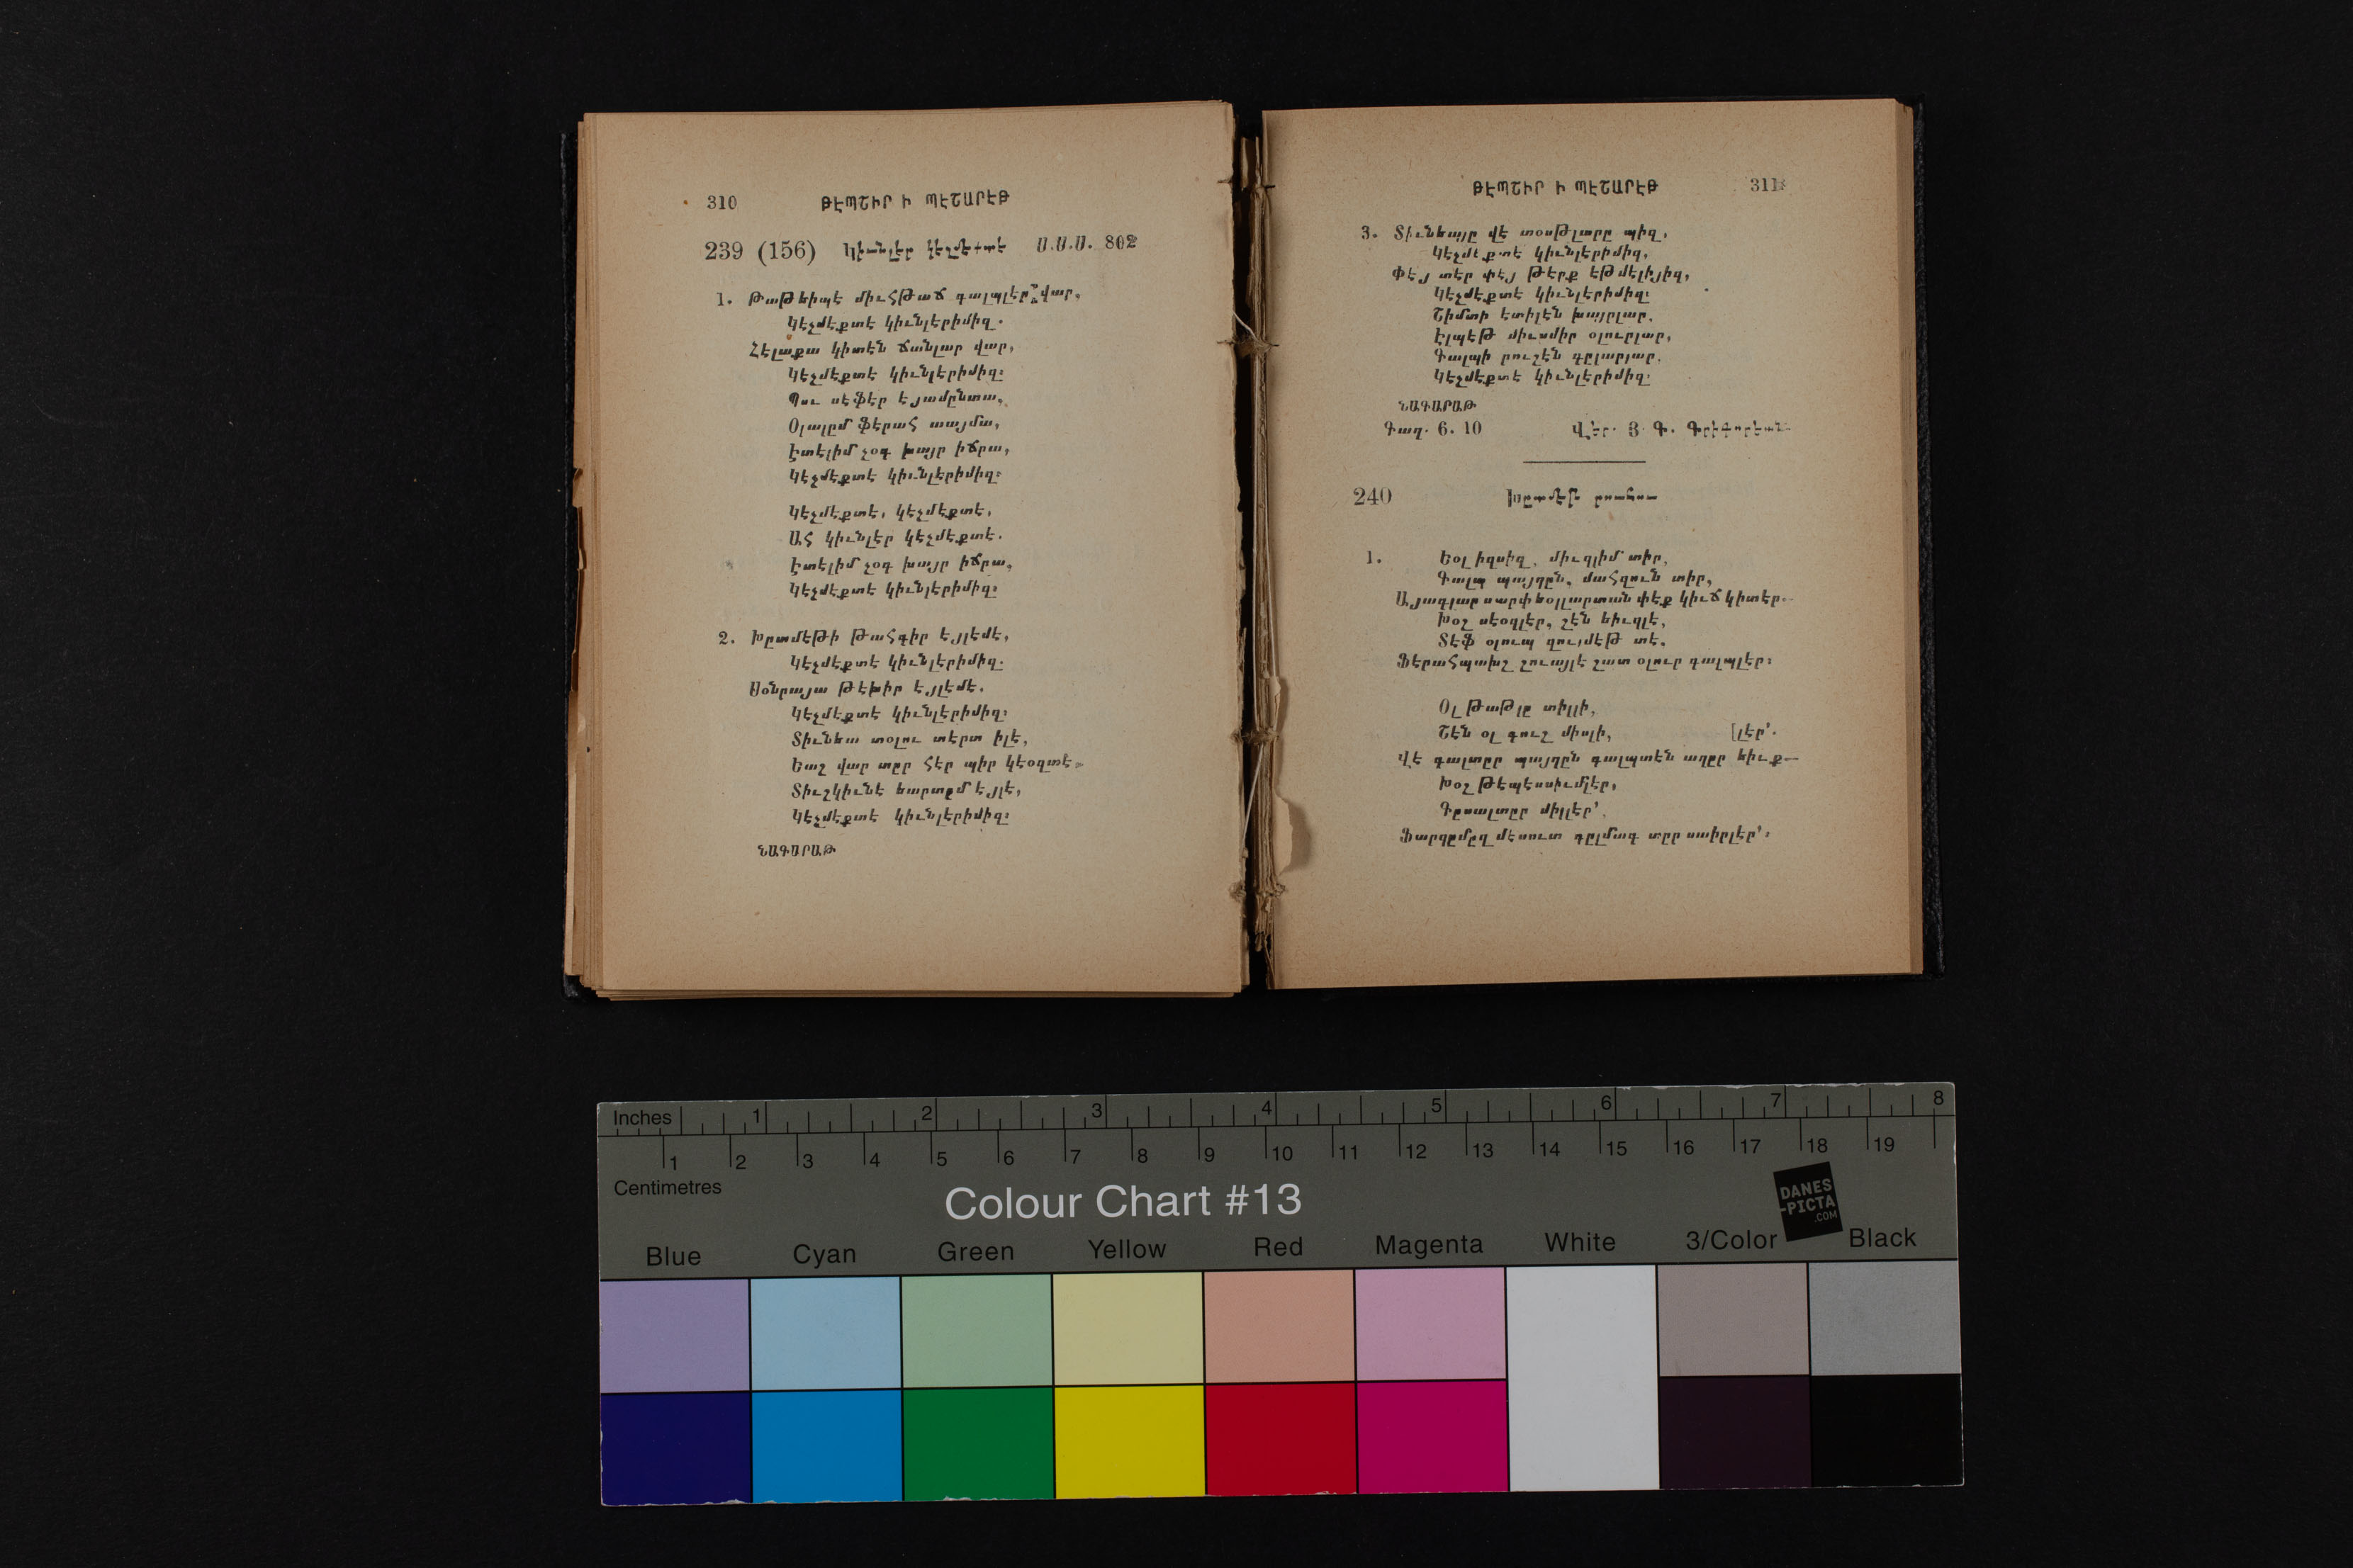 310 ԹԷՊՇԻՐ Ի ՊԷՇԱՐԷԹ
239 (156) Կիւնլէր կէչմէքտէ Ս.Ս.Ս. 802
1. Թաթեիպէ միւհթաճ գալպլէր վար,
Կէչմէքտէ կիւնլէրիմիզ.
Հէլաքա կիտէն ճանլար վար,
Կէչմէքտէ կիւնլէրիմիզ։
Պու սէֆէր էյամընտա,
Օլալըմ ֆէրահ տայմա,
Էտէլիմ չօգ խայր իճրա,
Կէչմէքտէ կիւնլէրիմիզ։
Կէչմէքտէ, կէչմէքտէ,
Ահ կիւնլէր կէչմէքտէ.
Էտէլիմ չօգ խայր իճրա,
Կէչմէքտէ կիւնլէրիմիզ։
2. Խըտմէթի թահգիր էյլէմէ,
Կէչմէքտէ կիւնլէրիմիզ.
Սօնրայա թէխիր էյլէմէ.
Կէչմէքտէ կիւնլէրիմիզ։
Տիւնեա տօլու տէրտ իլէ,
Եաշ վար տըր հէր պիր կէօզտէ
Տիւշկիւնէ եարտըմ էյլէ,
Կէչմէքտէ կիւնլէրիմիզ։
ՆԱԳԱՐԱԹ
ԹԷՊՇԻՐ Ի ՊԷՇԱՐԷԹ 311
3. Տիւնեայը վէ տօսթլարը պիզ,
Կէչմէքտէ կիւնլէրիմիզ,
Փէյ տէր փէյ թէրք էթմէլիյիզ,
Կէչմէքտէ կիւնլէրիմիզ։
Շիմտի էտիլէն խայրլար,
Էլպէթ միւսմիր օլուրլար,
Գալպի րուշէն գըլարլար.
Կէչմէքտէ կիւնլէրիմիզ։
ՆԱԳԱՐԱԹ
Գաղ. 6. 10 Վէր. Յ. Գ. Գրիգորեան
240 Խըտմէթ րուհու
1. Եօլ իզսիզ, միւզլիմ տիր,
Գալպ պայղըն, մահզուն տիր,
Այագլար սարփ եօլլարտան փէք կիւճ կիտէր.
Խօշ սէօզլէր, շէն եիւզլէ,
Տէֆ օլուպ զուլմէթ տէ.
Ֆէրահպախշ շուայլէ շատ օլուր գալպլէր։
Օլ թաթլը տիլլի,
Շէն օլ գուշ միսլի, [լէր՚.
Վէ գալտըր պայղըն գալպտէն աղըր եիւք—
Խօշ թէպէսսիւմլէր,
Գըսալտըր միլլէր՚,
Ֆարզըմըզ մէսուտ գըլմագ տըր սաիրլէր՚։
Inches 1 2 3 4 5 6 7 8
1 2 3 4 5 6 7 8 9 10 11 12 13 14 15 16 17 18 19
Centimetres
Colour Chart #13
DANES
-PICTA
.COM
Blue Cyan Green Yellow Red Magenta White 3/Color Black